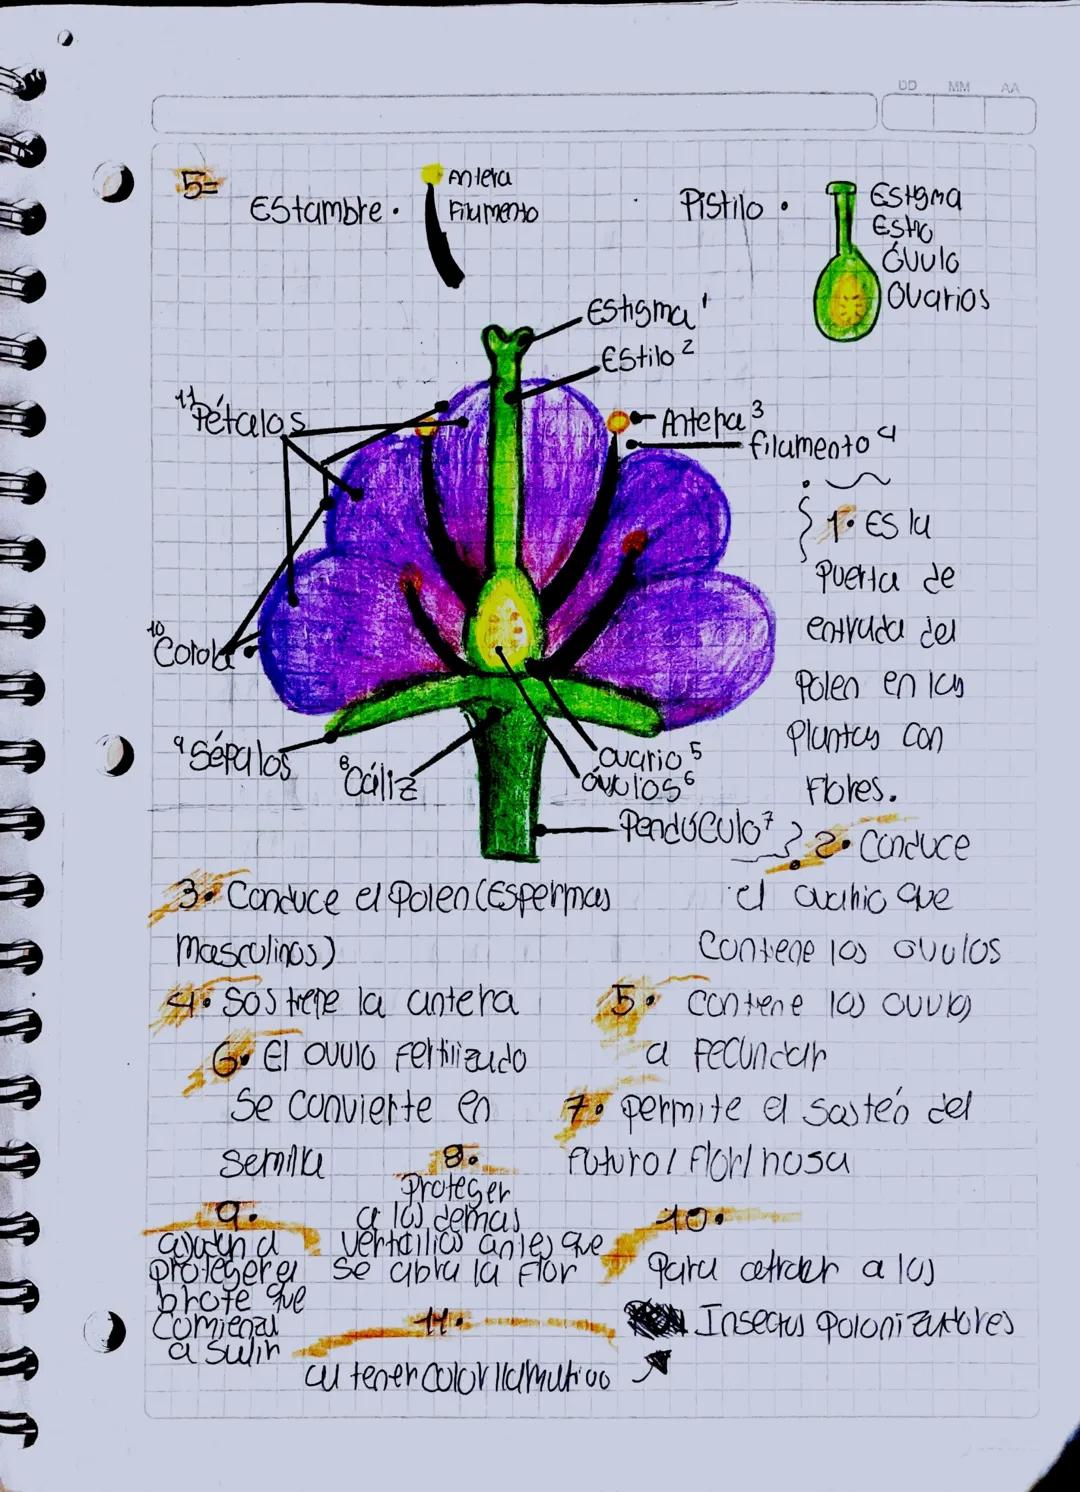 DD MM AA
5=
Estambre •
Antera
Filamento
Pistilo •
Estigma
Estilo
Óvulo
Ovarios
Estigma 1
Estilo 2
11 Pétalos
Antera 3
filamento 4
10 Corola
9 Sépalos
8 Cáliz
ovario 5
óvulos 6
Pendúculo 7
1• Es la
Puerta de
entrada del
Polen en las
Plantas con
Flores.
2• Conduce
el ovario que
Contiene los ovulos
3• Conduce el Polen (Espermas
masculinos)
4• Sostiene la antera
5• Contiene los ovulos
a fecundar
6• El ovulo fertilizado
Se convierte en
semilla
7• permite el sosten del
futuro/ flor/
8•
Proteger
a las demas
antes que
Se abra la Flor
9•
ayudan a
proteger el
brote que
comienza
a salir
10•
Para atraer a los
Insectos polonizadores
11•
al tener color llamativo